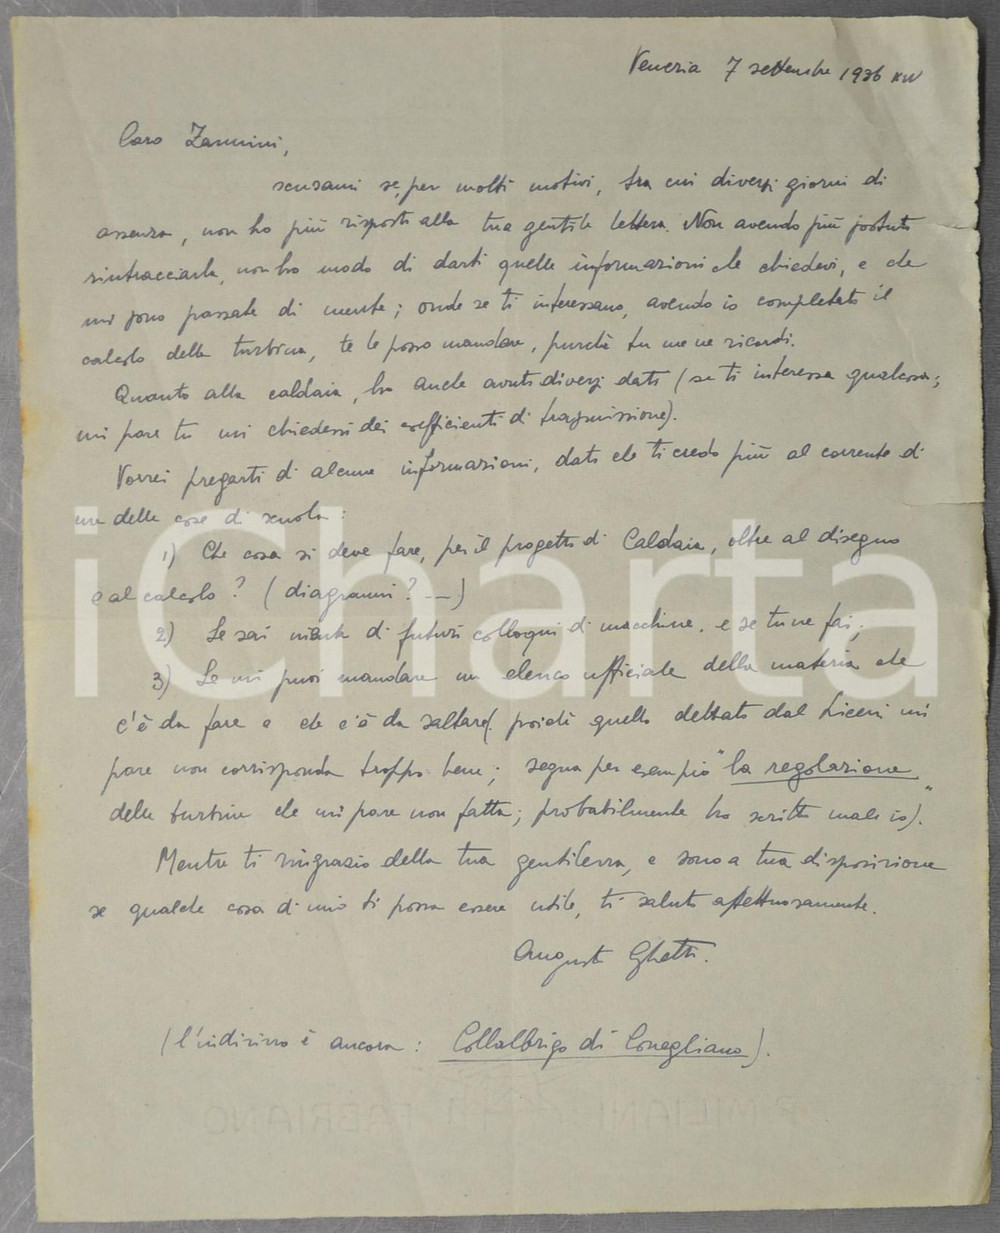 Venezia 7 settembre 1936 XIV
Caro Zannini,
scusami se, per molti motivi, tra cui diversi giorni di
assenza, non ho più risposto alla tua gentile lettera. Non avendo più potuto
rintracciarla, non ho modo di darti quelle informazioni che chiedevi, e che
mi sono passate di mente; onde se ti interessano, avendo io completato il
calcolo della turbina, te le posso mandare, purché tu me ne ricordi.
Quanto alla caldaia, ho anche avuti diversi dati (se ti interessa qualcosa;
mi pare tu mi chiedessi dei coefficienti di trasmissione).
Vorrei pregarti di alcune informazioni, dato che ti credo più al corrente di
me delle cose di scuola:
1) Che cosa si deve fare, per il progetto di Caldaia, oltre al disegno
e al calcolo? (diagrammi? ...)
2) Se sai niente di futuri colloqui di macchine. e se tu ne fai;
3) Se mi puoi mandare un elenco ufficiale della materia che
c'è da fare e che c'è da saltare (poiché quello dettato dal Liceni mi
pare non corrisponda troppo bene; segna per esempio "la regolazione"
delle turbine che mi pare non fatta; probabilmente ho scritto male io).
Mentre ti ringrazio della tua gentilezza, e sono a tua disposizione
se qualche cosa di mio ti possa essere utile, ti saluto affettuosamente.
Augusto Ghetti.
(l'indirizzo è ancora: Collalbrigo di Conegliano).
P. MILIANI FABRIANO
iCharta